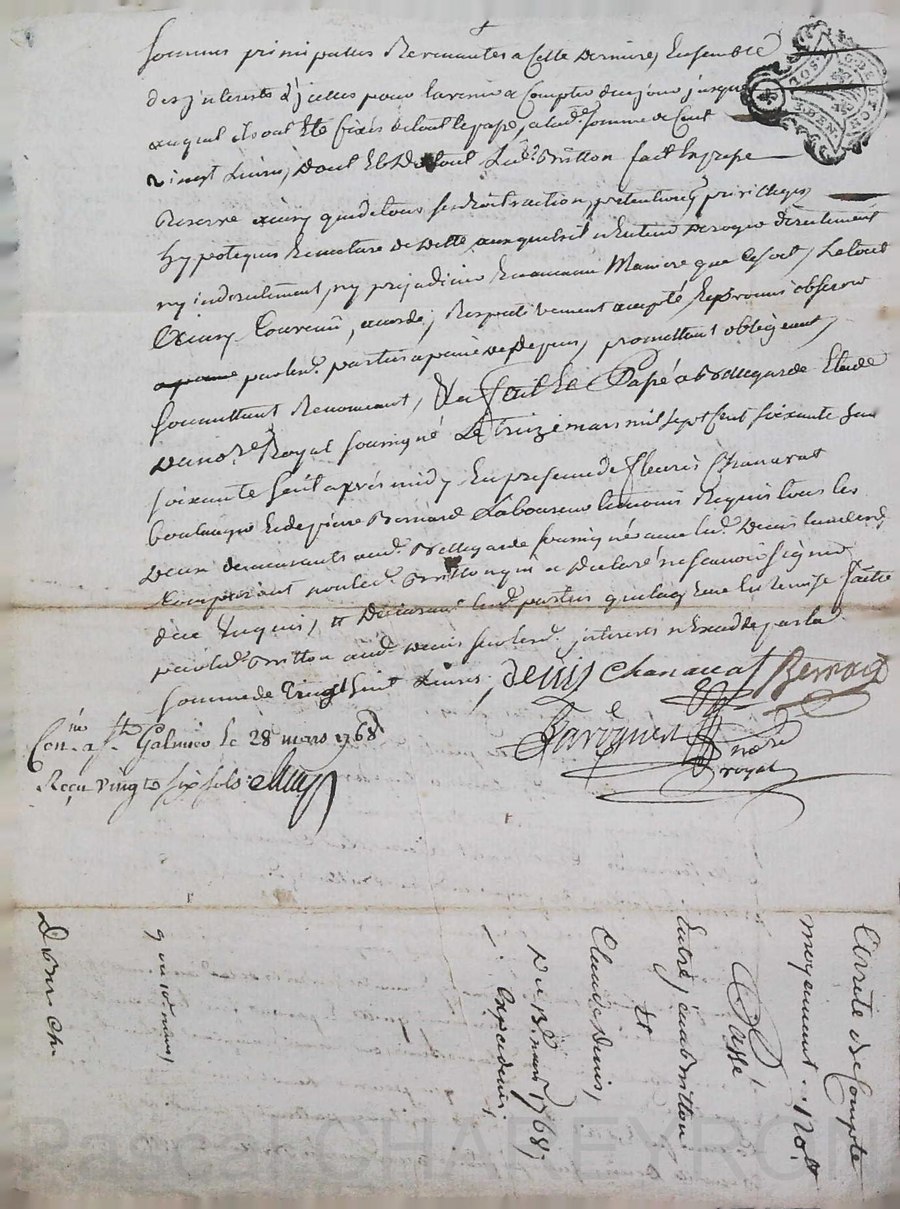 sommes principalles Revenantes a Cette Derniere, Ensemble
des jnterets d'jcelles pour lavenir a Compter de ce jour jusques
auquel ils ont Eté fixés de tout le passé, a lad.e somme de Cent
vingt Livres, Dont Et Du tout Led.t Britton fait Expresse
Reserve ainsy que de tous ses droits action, pretentions privilleges
hypoteques Et nature de dette auxquels il n'Entend Deroger directement
ny indirectement, ny prejudicier En aucune Maniere que Ce soit, Le tout
Ainsy Convenu, accordé, Respectivement accepté, Et promis observer
par lesd. parties a peine de Depens, promettant obligeant,
soumettant Renonçant, &a fait Et Passé a Bellegarde Etude
Du no.re Royal soussigné Le treize mars mil sept cent soixante
soixante huit après midy En presence de fleury Chanavat
boulanger Et de pierre Bernard Laboureur temoins Requis tous les
deux demeurants aud. Bellegarde soussignés avec led. Denis
non led. Britton qui a Declaré ne sçavoir signer
de ce Enquis, Et Declarant lesd. parties que la remise faitte
par led. Britton aud. Denis sur lesd. jnterets n'Excede pas la
somme de Vingt Cinq Livres, denis Chanavat Bernard
no.re
royal
Con.né a s.t Galmier le 28 mars 1768
Reçu vingt six sols
Arreté de Compte
moyennant .. 120 lt
Passé
Entre jean britton
Et
Claude Denis,
Du 13e mars 1768
Exp.ee denis.